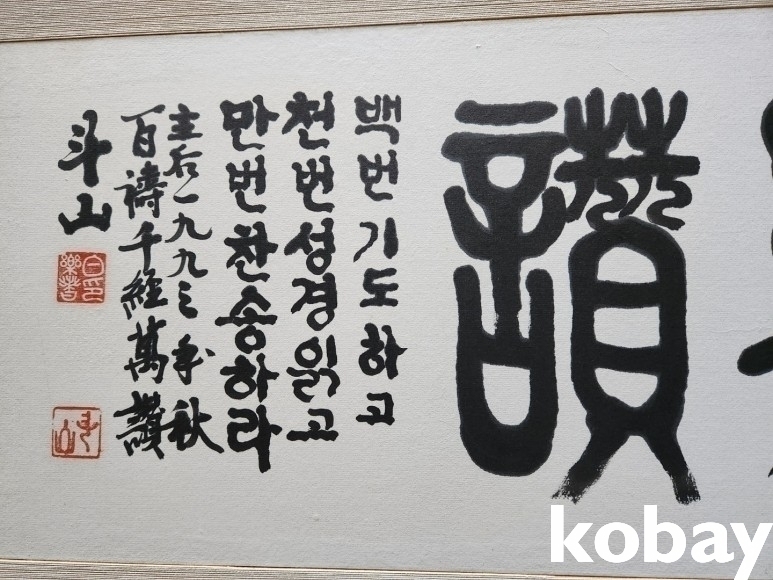 讚
백번기도하고
천번성경읽고
만번찬송하라
主后一九九三年秋
百禱千經萬讚
斗山
kobay